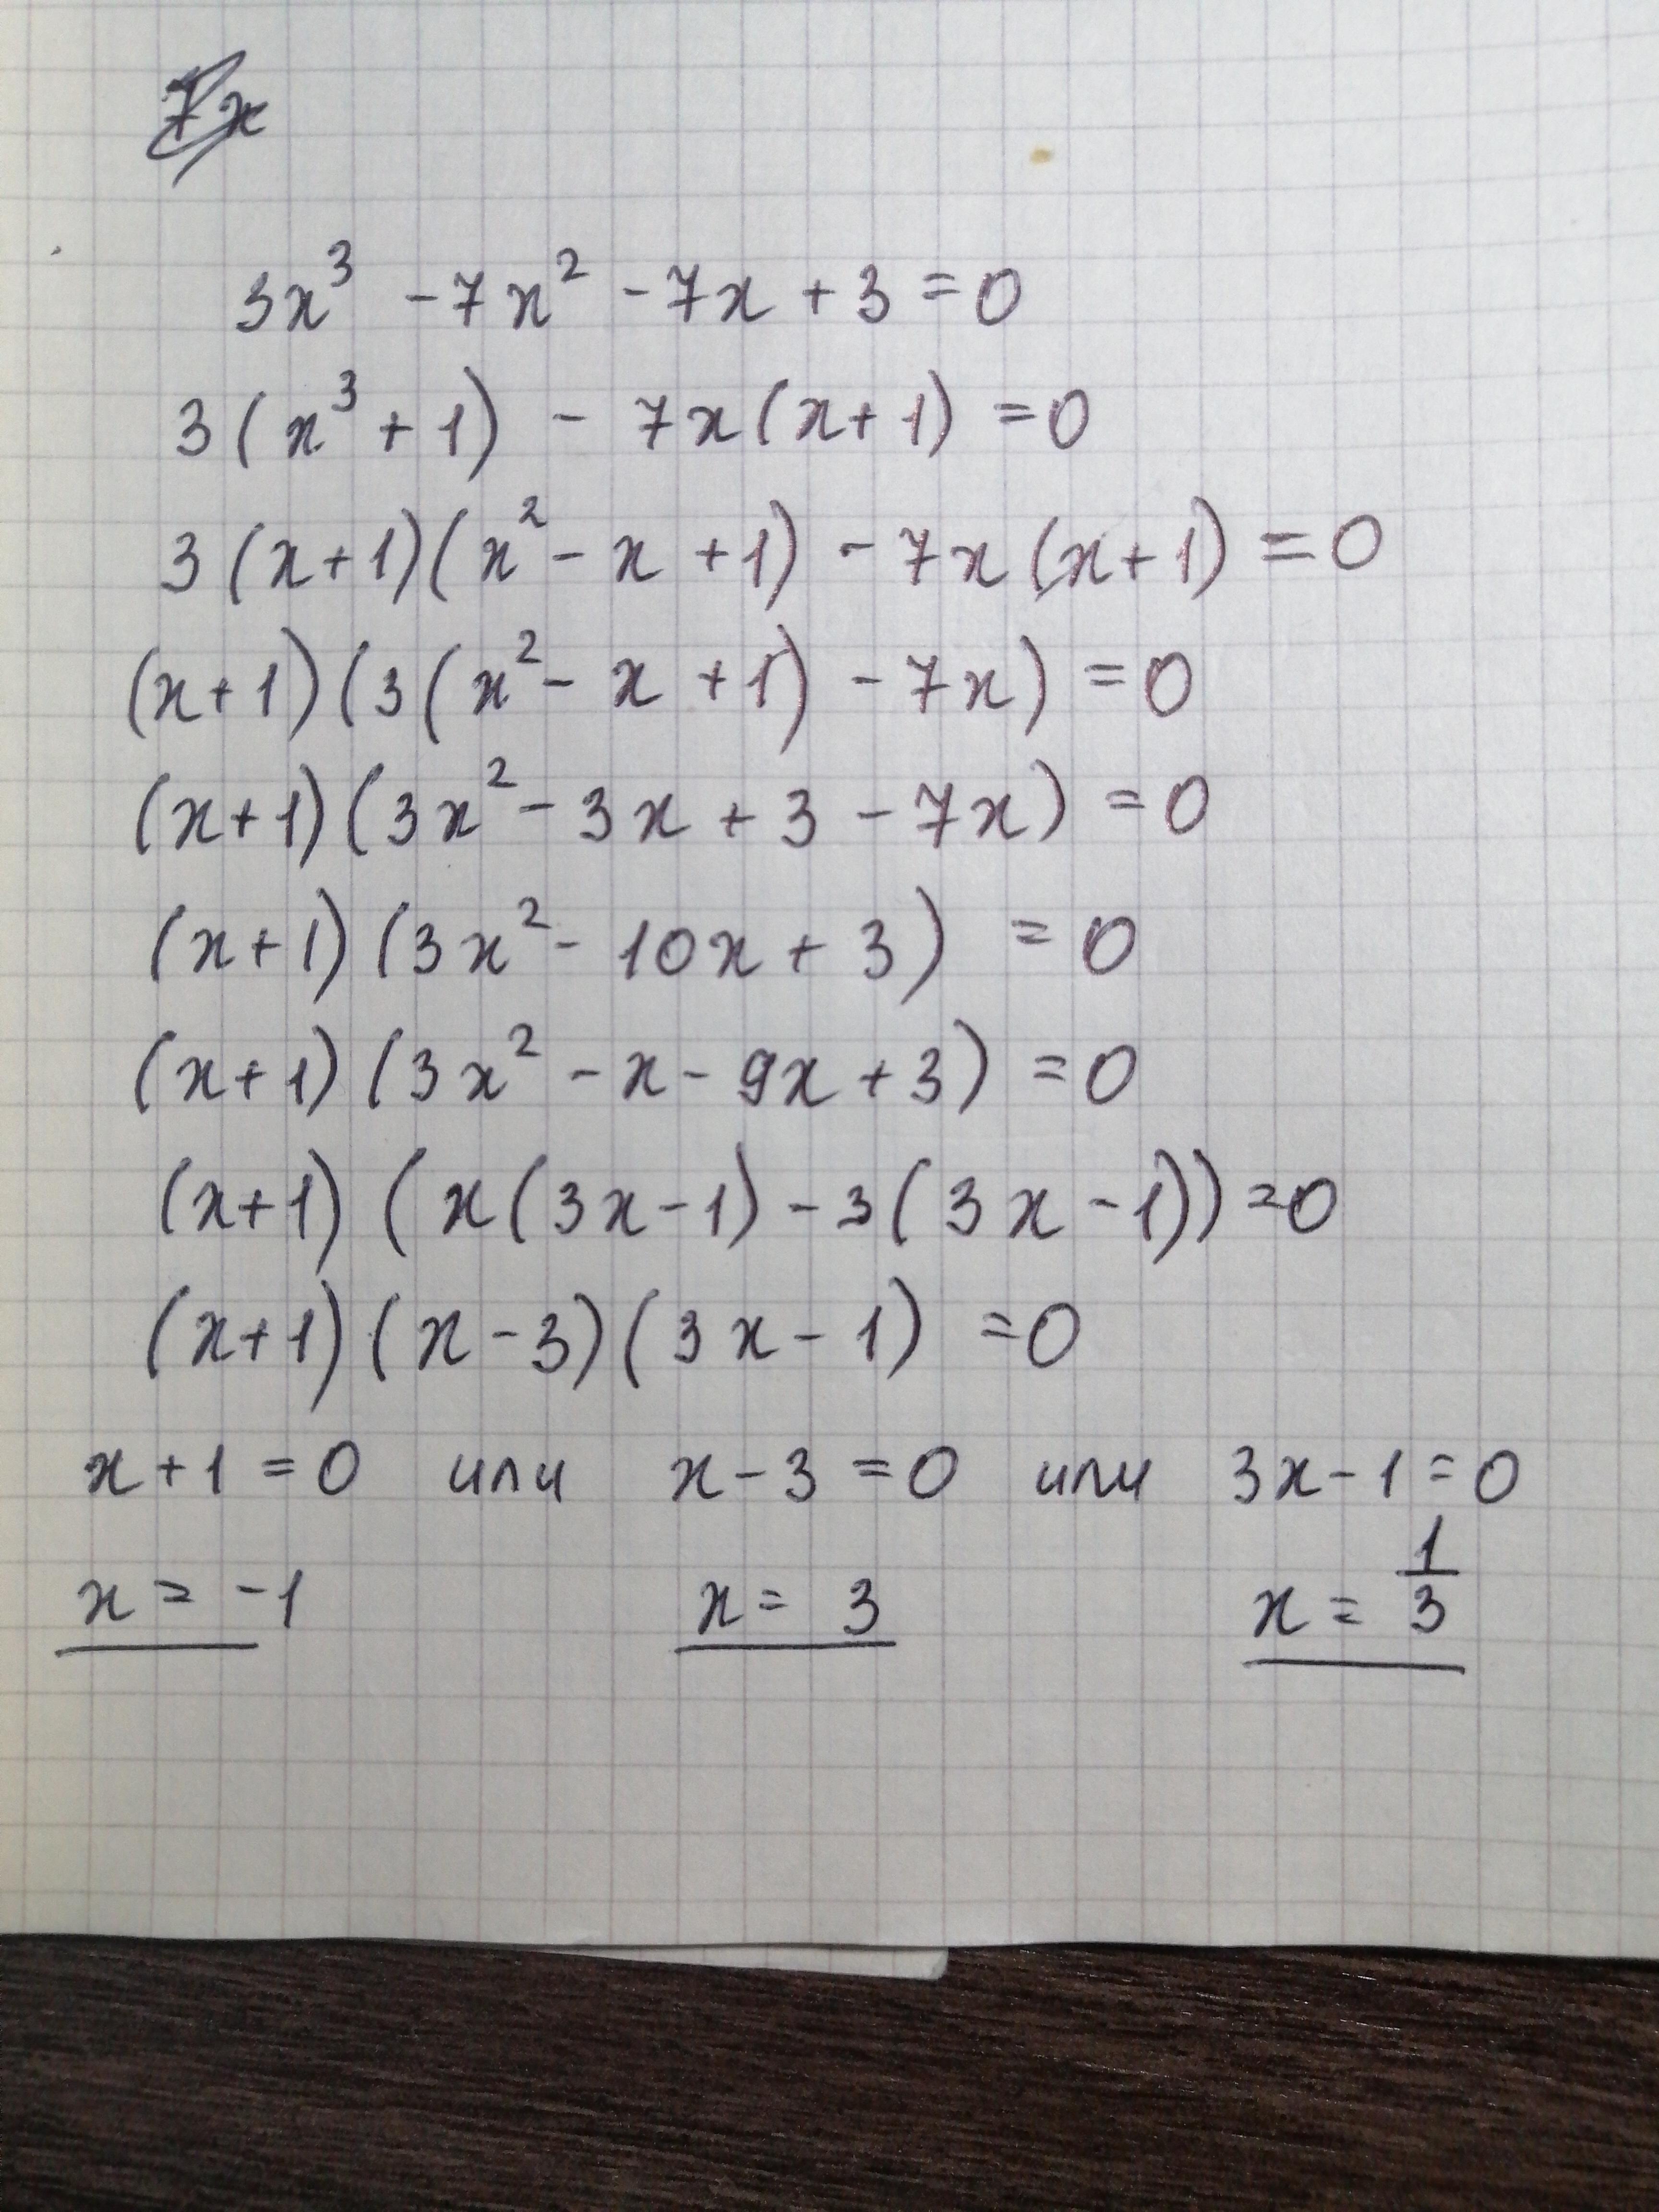 7x
3x³ - 7x² - 7x + 3 = 0
3(x³ + 1) - 7x(x + 1) = 0
3(x+1)(x² - x + 1) - 7x(x+1) = 0
(x+1)(3(x² - x + 1) - 7x) = 0
(x+1)(3x² - 3x + 3 - 7x) = 0
(x+1)(3x² - 10x + 3) = 0
(x+1)(3x² - x - 9x + 3) = 0
(x+1)(x(3x-1) - 3(3x-1)) = 0
(x+1)(x-3)(3x-1) = 0
x+1=0 или x-3=0 или 3x-1=0
x = -1 x = 3 x = 1/3